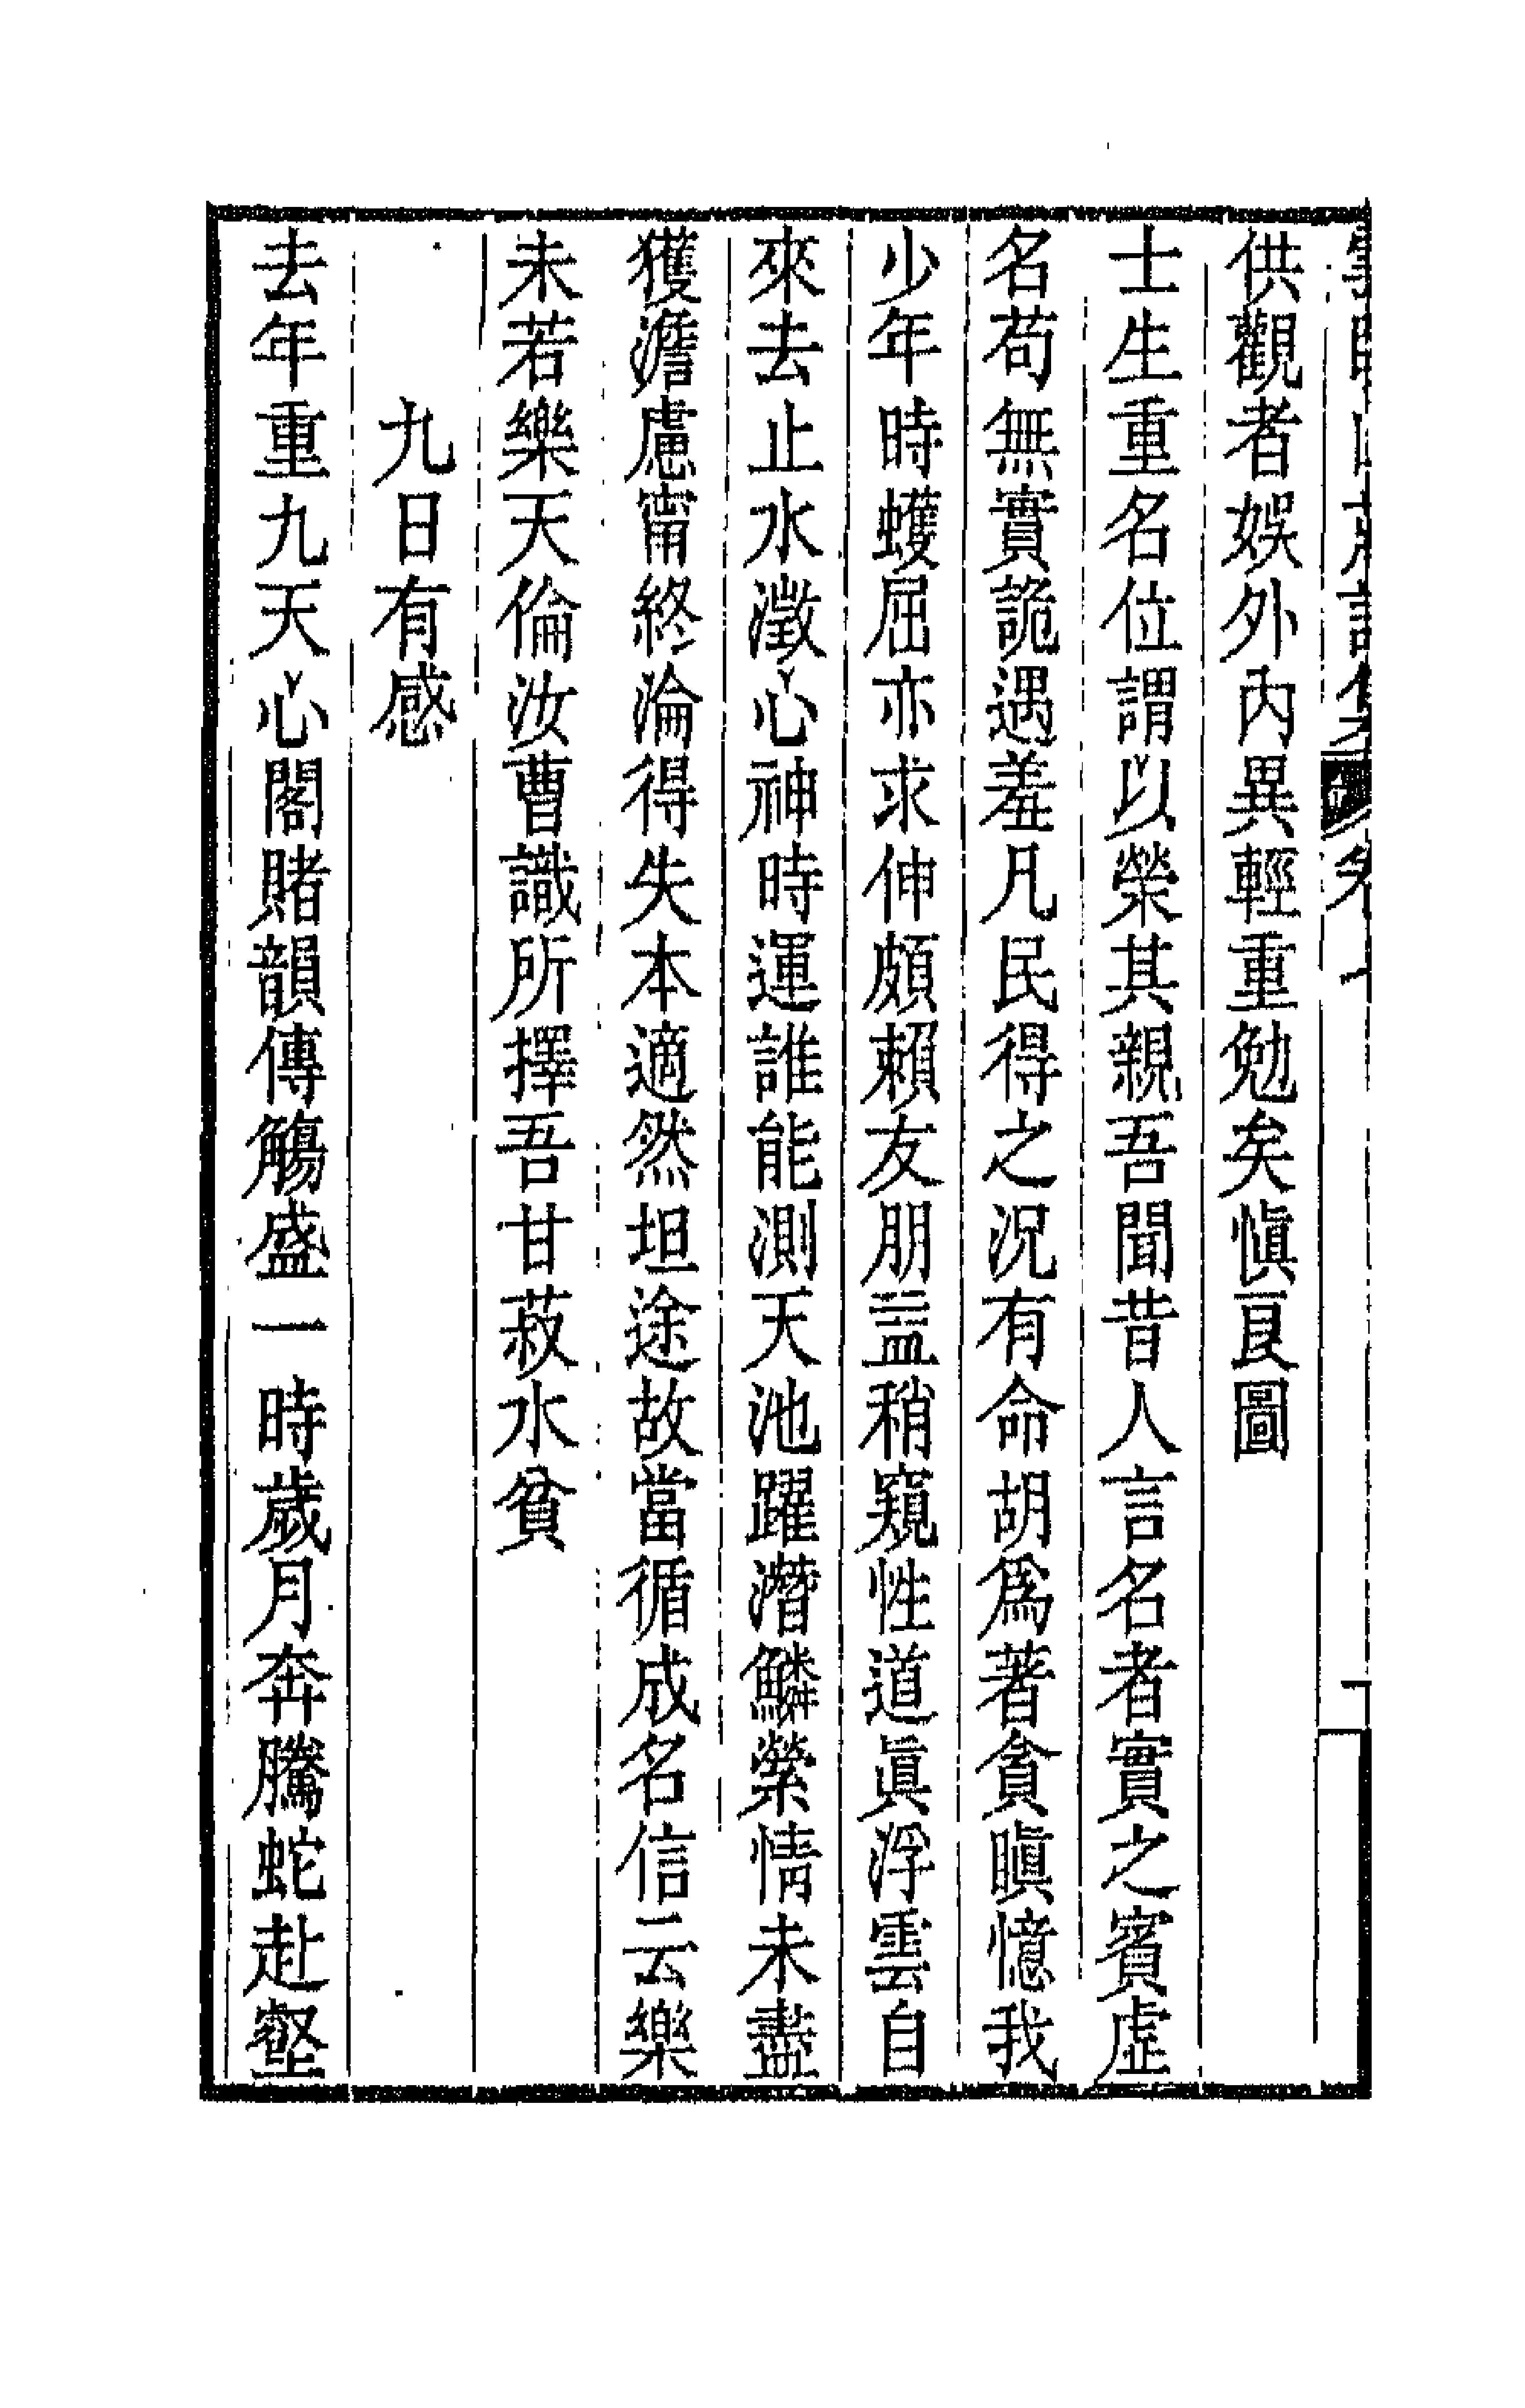 供觀者娛外內異輕重勉矣慎良圖
士生重名位謂以榮其親吾聞昔人言名者實之賓虛
名苟無實詭遇羞凡民得之況有命胡爲著貪瞋憶我
少年時蠖屈亦求伸頗賴友朋益稍窺性道眞浮雲自
來去止水澂心神時運誰能測天池躍潛鱗縈情未盡
獲澹慮甯終淪得失本適然坦途故當循成名信云樂
未若樂天倫汝曹識所擇吾甘菽水貧
九日有感
去年重九天心閣賭韻傳觴盛一時歲月奔騰蛇赴壑